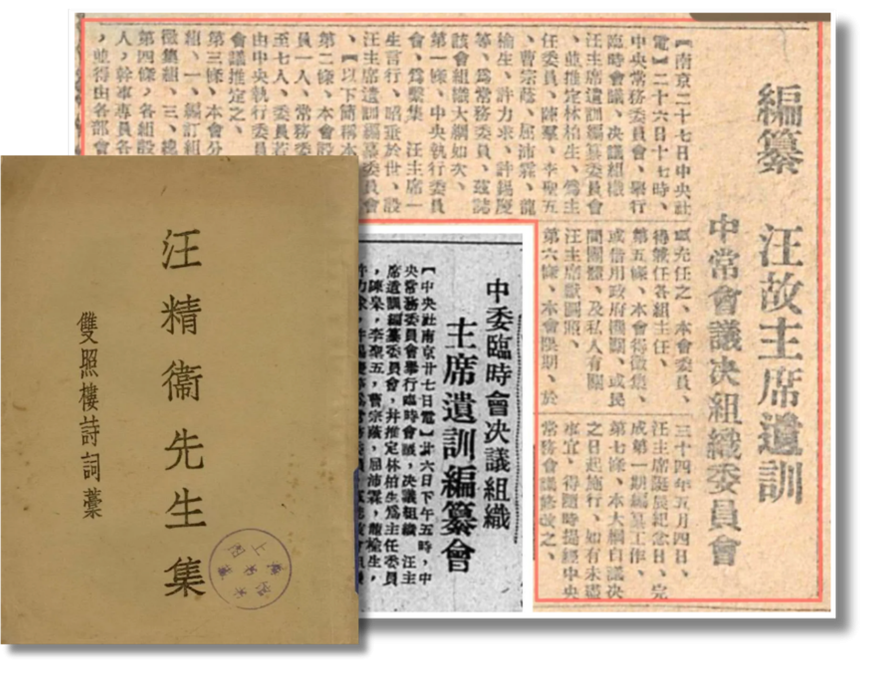 編纂 汪故主席遺訓
中常會議決組織委員會
【南京二十七日中央社
電】二十六日十七時、
中央常務委員會、舉行
臨時會議、決議組織
汪主席遺訓編纂委員會
、並推定林柏生、爲主
任委員、陳羣、李聖五
、曹宗蔭、屈沛霖、龍
榆生、許力求、許錫慶
等、爲常務委員、茲誌
該會組織大綱如次、
第一條、中央執行委員
會、爲 集 汪主席一
生言行、昭垂於世、設
汪主席遺訓編纂委員會
、【以下簡稱本
第二條、本會設
員一人、常務委
至七人、委員若
由中央執行委員
會議推定之、
第三條、本會分
組、一、編訂組
徵集組、三、總
第四條、各組設
人、幹事專員各
、並得由各部會
充任之、本會委員、
得兼任各組主任、
第五條、本會得徵集、
或借用政府機關、或民
間團體、及私人有關
汪主席 圖照、
第六條、本會限期、於
三十四年五月四日、
汪主席誕辰紀念日、完
成第一期編纂工作、
第七條、本大綱自議決
之日起施行、如有未盡
事宜、得隨時提經中央
常務會議修改之、
中委臨時會决議組織
主席遺訓編纂會
【中央社南京廿七日電】廿六日下午五時，中
央常務委員會舉行臨時會議，决議組織 汪主
席遺訓編纂委員會，并推定林柏生爲主任委員
，陳羣，李聖五，曹宗蔭，屈沛霖，龍榆生，
汪精衞先生集
雙照樓詩詞藳